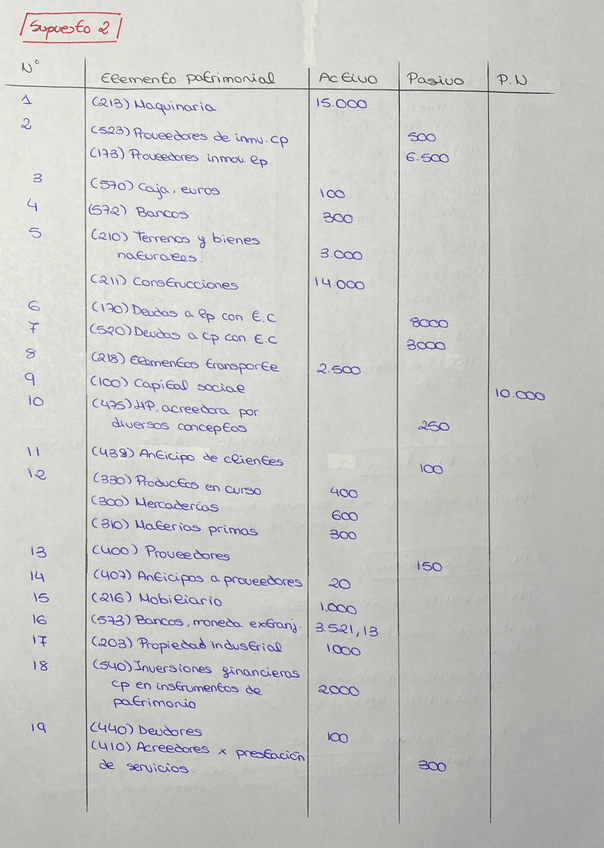 Supuesto 2
Nº Elemento patrimonial Activo Pasivo P.N
1 (213) Maquinaria 15.000
2 (523) Proveedores de inmv. cp 500
(173) Proveedores inmov. lp. 6.500
3 (570) Caja, euros 100
4 (572) Bancos 300
5 (210) Terrenos y bienes
naturales. 3.000
(211) Construcciones 14.000
6 (170) Deudas a lp con E.C 8000
7 (520) Deudas a cp con E.C 3000
8 (218) Elementos transporte 2.500
9 (100) Capital social 10.000
10 (475) HP, acreedora por
diversos conceptos 250
11 (438) Anticipo de clientes 100
12 (330) Productos en curso 400
(300) Mercaderías 600
(310) Materias primas 300
13 (400) Proveedores 150
14 (407) Anticipos a proveedores 20
15 (216) Mobiliario 1.000
16 (573) Bancos, moneda extranj. 3.521,13
17 (203) Propiedad Industrial 1000
18 (540) Inversiones financieras
cp en instrumentos de 2000
patrimonio
19 (440) Deudores 100
(410) Acreedores x prestación
de servicios. 300